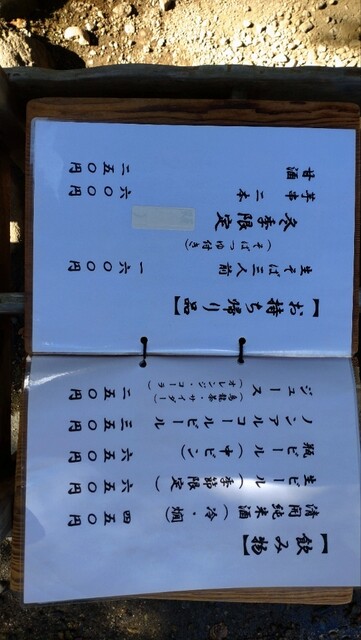 【飲み物】
清開純米酒(冷・燗) 四五〇円
生ビール(季節限定) 六五〇円
瓶ビール(中ビン) 六五〇円
ノンアルコールビール 三五〇円
ジュース 二五〇円
(オレンジ・コーラ)
(烏龍茶・サイダー)
【お持ち帰り品】
生そば三人前 一六〇〇円
(そばつゆ付き)
冬季限定
芋串 二本 六〇〇円
甘酒 二五〇円